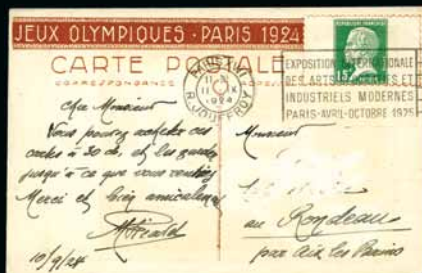 JEUX OLYMPIQUES · PARIS 1924
CARTE POSTALE
CORRESPONDANCE
15
PARIS XVII
R. JOUFFROY
1924
EXPOSITION INTERNATIONALE
DES ARTS DÉCORATIFS ET
INDUSTRIELS MODERNES
PARIS-AVRIL-OCTOBRE 1925
Cher Monsieur
Vous pouvez acheter ces
cartes à 30 cs, et les garder
jusqu'à ce que vous
Merci et bien amicalement
10/9/24
Monsieur
au Rondeau
par Aix les Bains